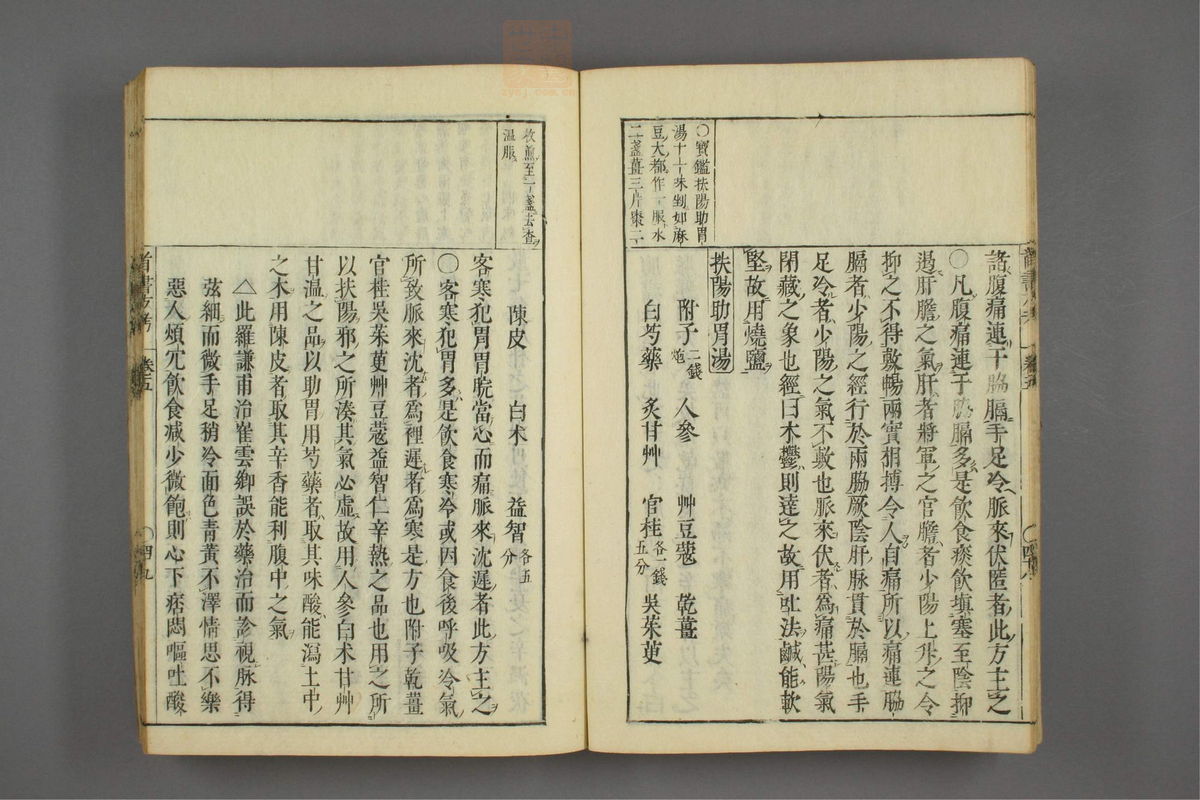 ○寶鑑扶陽助胃
湯十一味剉如麻
豆大都作一服水
二盞薑三片棗二
諸腹痛連于脇膈手足冷脈來伏匿者此方主之
○凡腹痛連于脇膈多是飲食痰飲填塞至陰抑
遏肝膽之氣肝者將軍之官膽者少陽上升之令
抑之不得敷暢兩實相搏令人自痛所以痛連脇
膈者少陽之經行於兩脇厥陰肝脈貫於膈也手
足冷者少陽之氣不敷也脈來伏者為痛甚陽氣
閉藏之象也經曰木鬱則達之故用吐法鹹能軟
堅故用燒鹽
扶陽助胃湯
附子二錢炮 人參 艸豆蔻 乾薑
白芍藥 炙甘艸 官桂各一錢五分 吳茱萸
卷五
枚煎至一盞去查
溫服
陳皮 白术 益智各五分
客寒犯胃胃脘當心而痛脈來沈遲者此方主之
○客寒犯胃多是飲食寒冷或因食後呼吸冷氣
所致脈來沈者為裡遲者為寒是方也附子乾薑
官桂吳茱萸艸豆蔻益智仁辛熱之品也用之所
以扶陽邪之所湊其氣必虛故用人參白术甘艸
甘溫之品以助胃用芍藥者取其味酸能瀉土中
之木用陳皮者取其辛香能利腹中之氣
△此羅謙甫治崔雲卿誤於藥治而診視脈得
弦細而微手足稍冷面色青黃不澤情思不樂
惡人煩冗飲食減少微飽則心下痞悶嘔吐酸
醫方考 卷五 ○四九